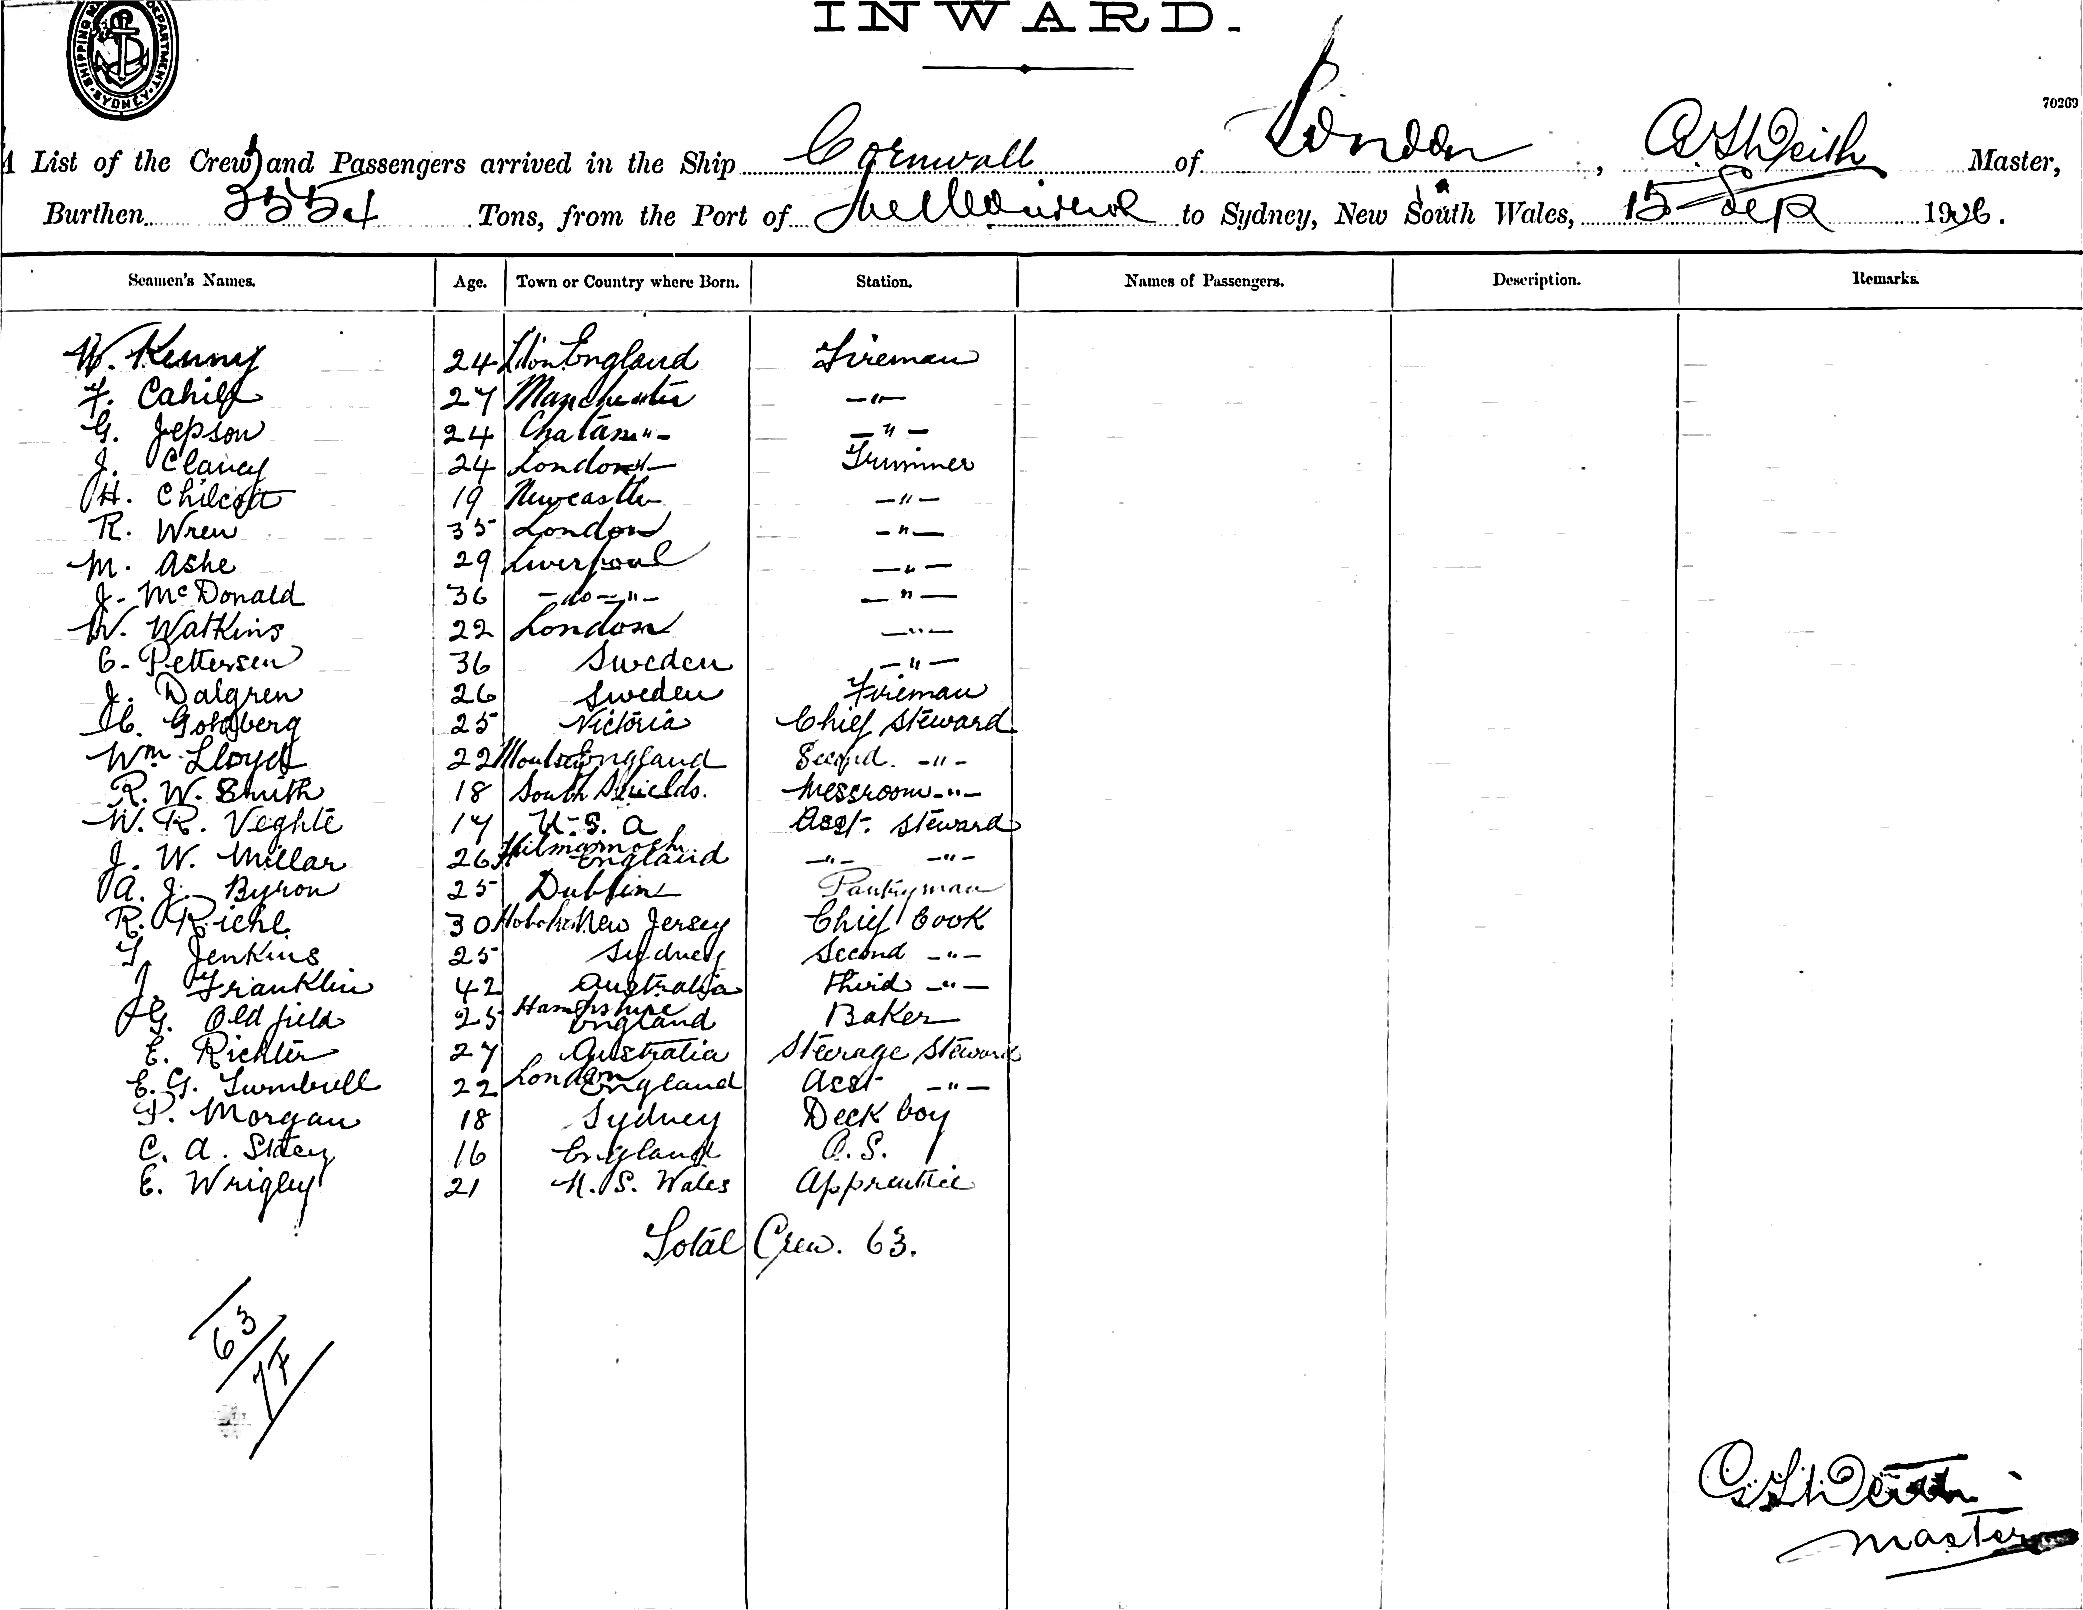 INWARD.
SHIPPING DEPARTMENT SYDNEY
70209
A List of the Crew and Passengers arrived in the Ship Cornwall of London, Master,
Burthen 3554 Tons, from the Port of Melbourne to Sydney, New South Wales, 15 Sep 1906.
Seamen's Names. Age. Town or Country where Born. Station. Names of Passengers. Description. Remarks.
W. Kenny 24 England Fireman
F. Cahill 27 Manchester —"—
G. Jepson 24 Chatam "- —"—
J. Clancy 24 London Trimmer
H. Chilcott 19 Newcastle —"—
R. Wren 35 London —"—
M. Ashe 29 Liverpool —"—
J. McDonald 36 -do-"- —"—
W. Watkins 22 London —"—
C. Pettersen 36 Sweden —"—
J. Dalgren 26 Sweden Fireman
H. Goldberg 25 Victoria Chief Steward
Wm Lloyd 22 England Second. -"-
R. W. Smith 18 South Shields. Messroom -"-
W. R. Veghte 17 U.S.A Asst. Steward
J. W. Millar 26 Kilmarnock England -"- -"-
A. J. Byron 25 Dublin Pantryman
R. Riehl 30 Hoboken New Jersey Chief Cook
T. Jenkins 25 Sydney Second -"-
J. Franklin 42 Australia Third -"-
G. Oldfield 25 Hampshire England Baker
E. Richter 27 Australia Steerage Steward
E. G. Turnbull 22 London England Asst -"-
P. Morgan 18 Sydney Deck boy
C. A. Stacy 16 England O.S.
E. Wrigley 21 N. S. Wales Apprentice
Total Crew. 63.
63
Master